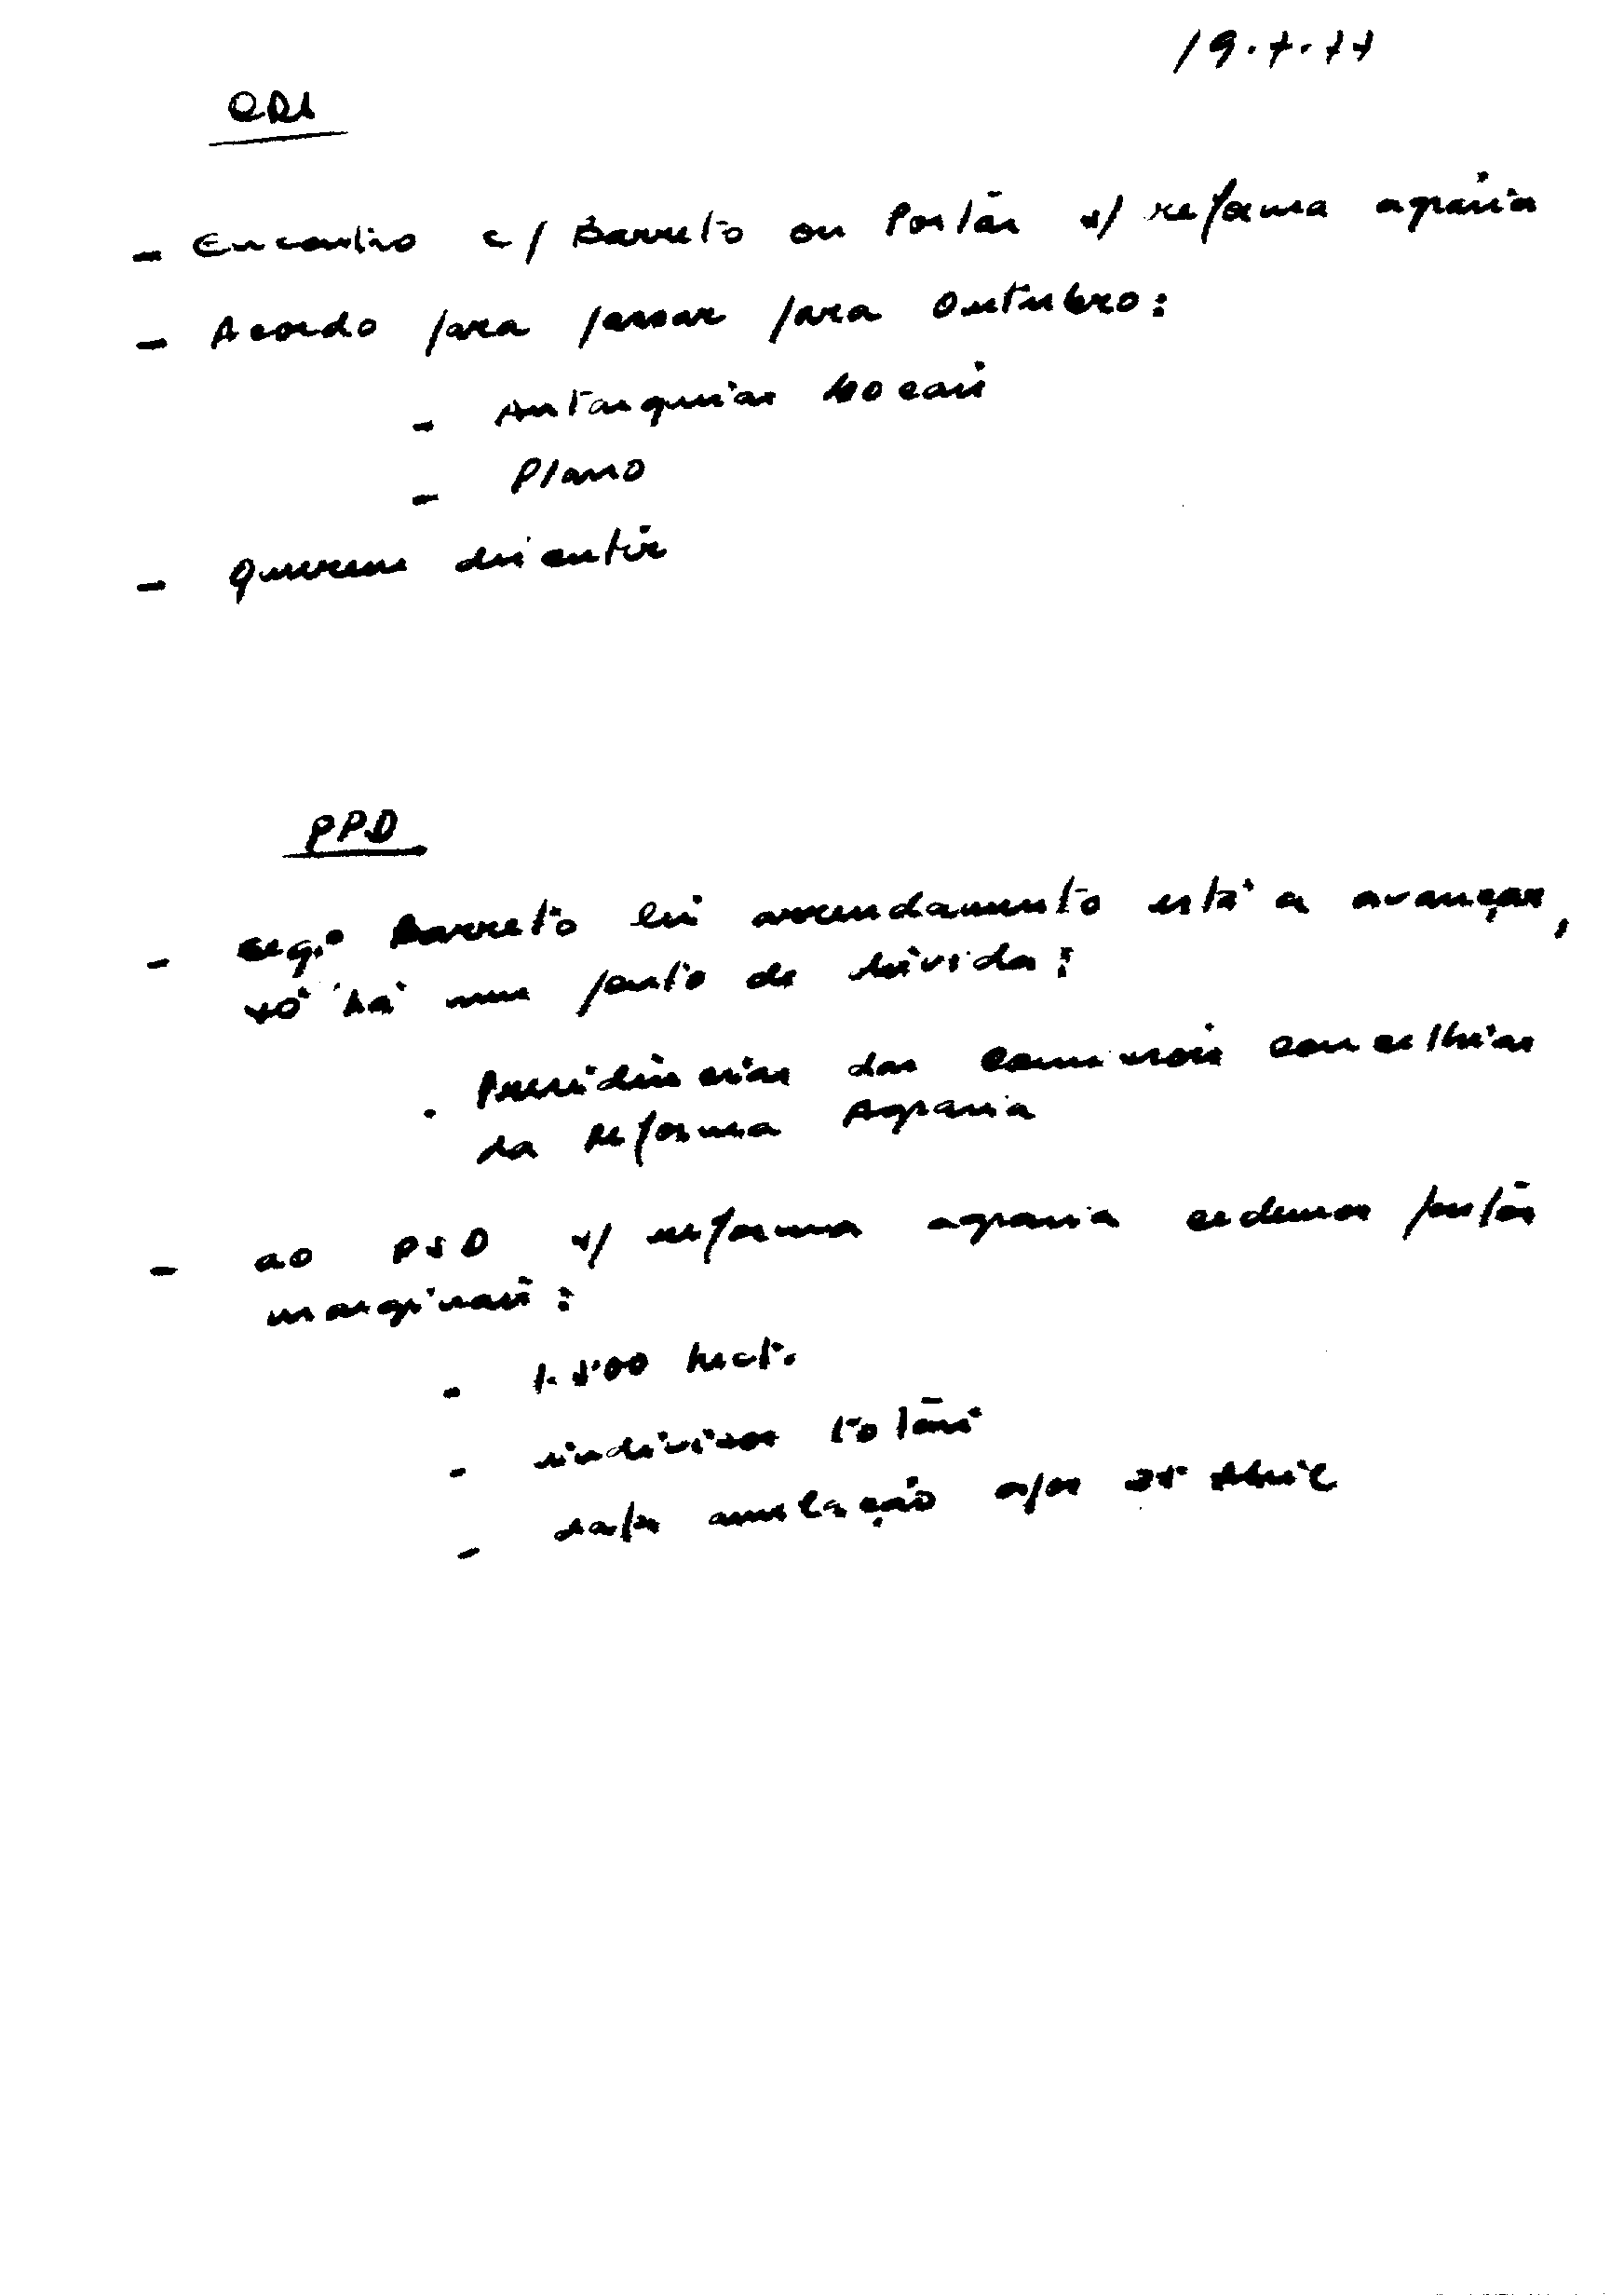 19.7.77
CDS
- Encontro c/ Barreto ou Portas s/ reforma agrária
- Acordo para passar para Outubro:
- Autarquias Locais
- Plano
- querem discutir
PPD
- segº Barreto lei arrendamento está a avançar,
só há um ponto de dúvida:
. Presidências das comissões concelhias
da Reforma Agrária
- ao PSD s/ reforma agrária cedemos pontos
marginais:
- 1.500 hect.
- indivisos totais
- anulação após 25 Abril